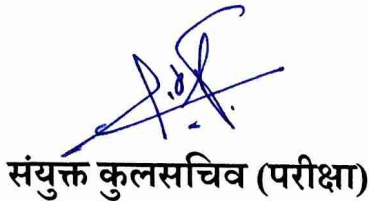 संयुक्त कुलसचिव (परीक्षा)